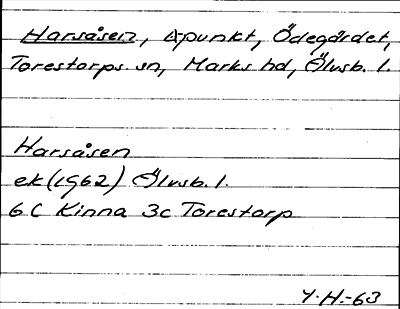 Harsåsen, △punkt, Ödegärdet,
Torestorps sn, Marks hd, Älvsb. l.
Harsåsen
ek (1962) Älvsb. l.
6 C Kinna 3c Torestorp
Y.H.-63